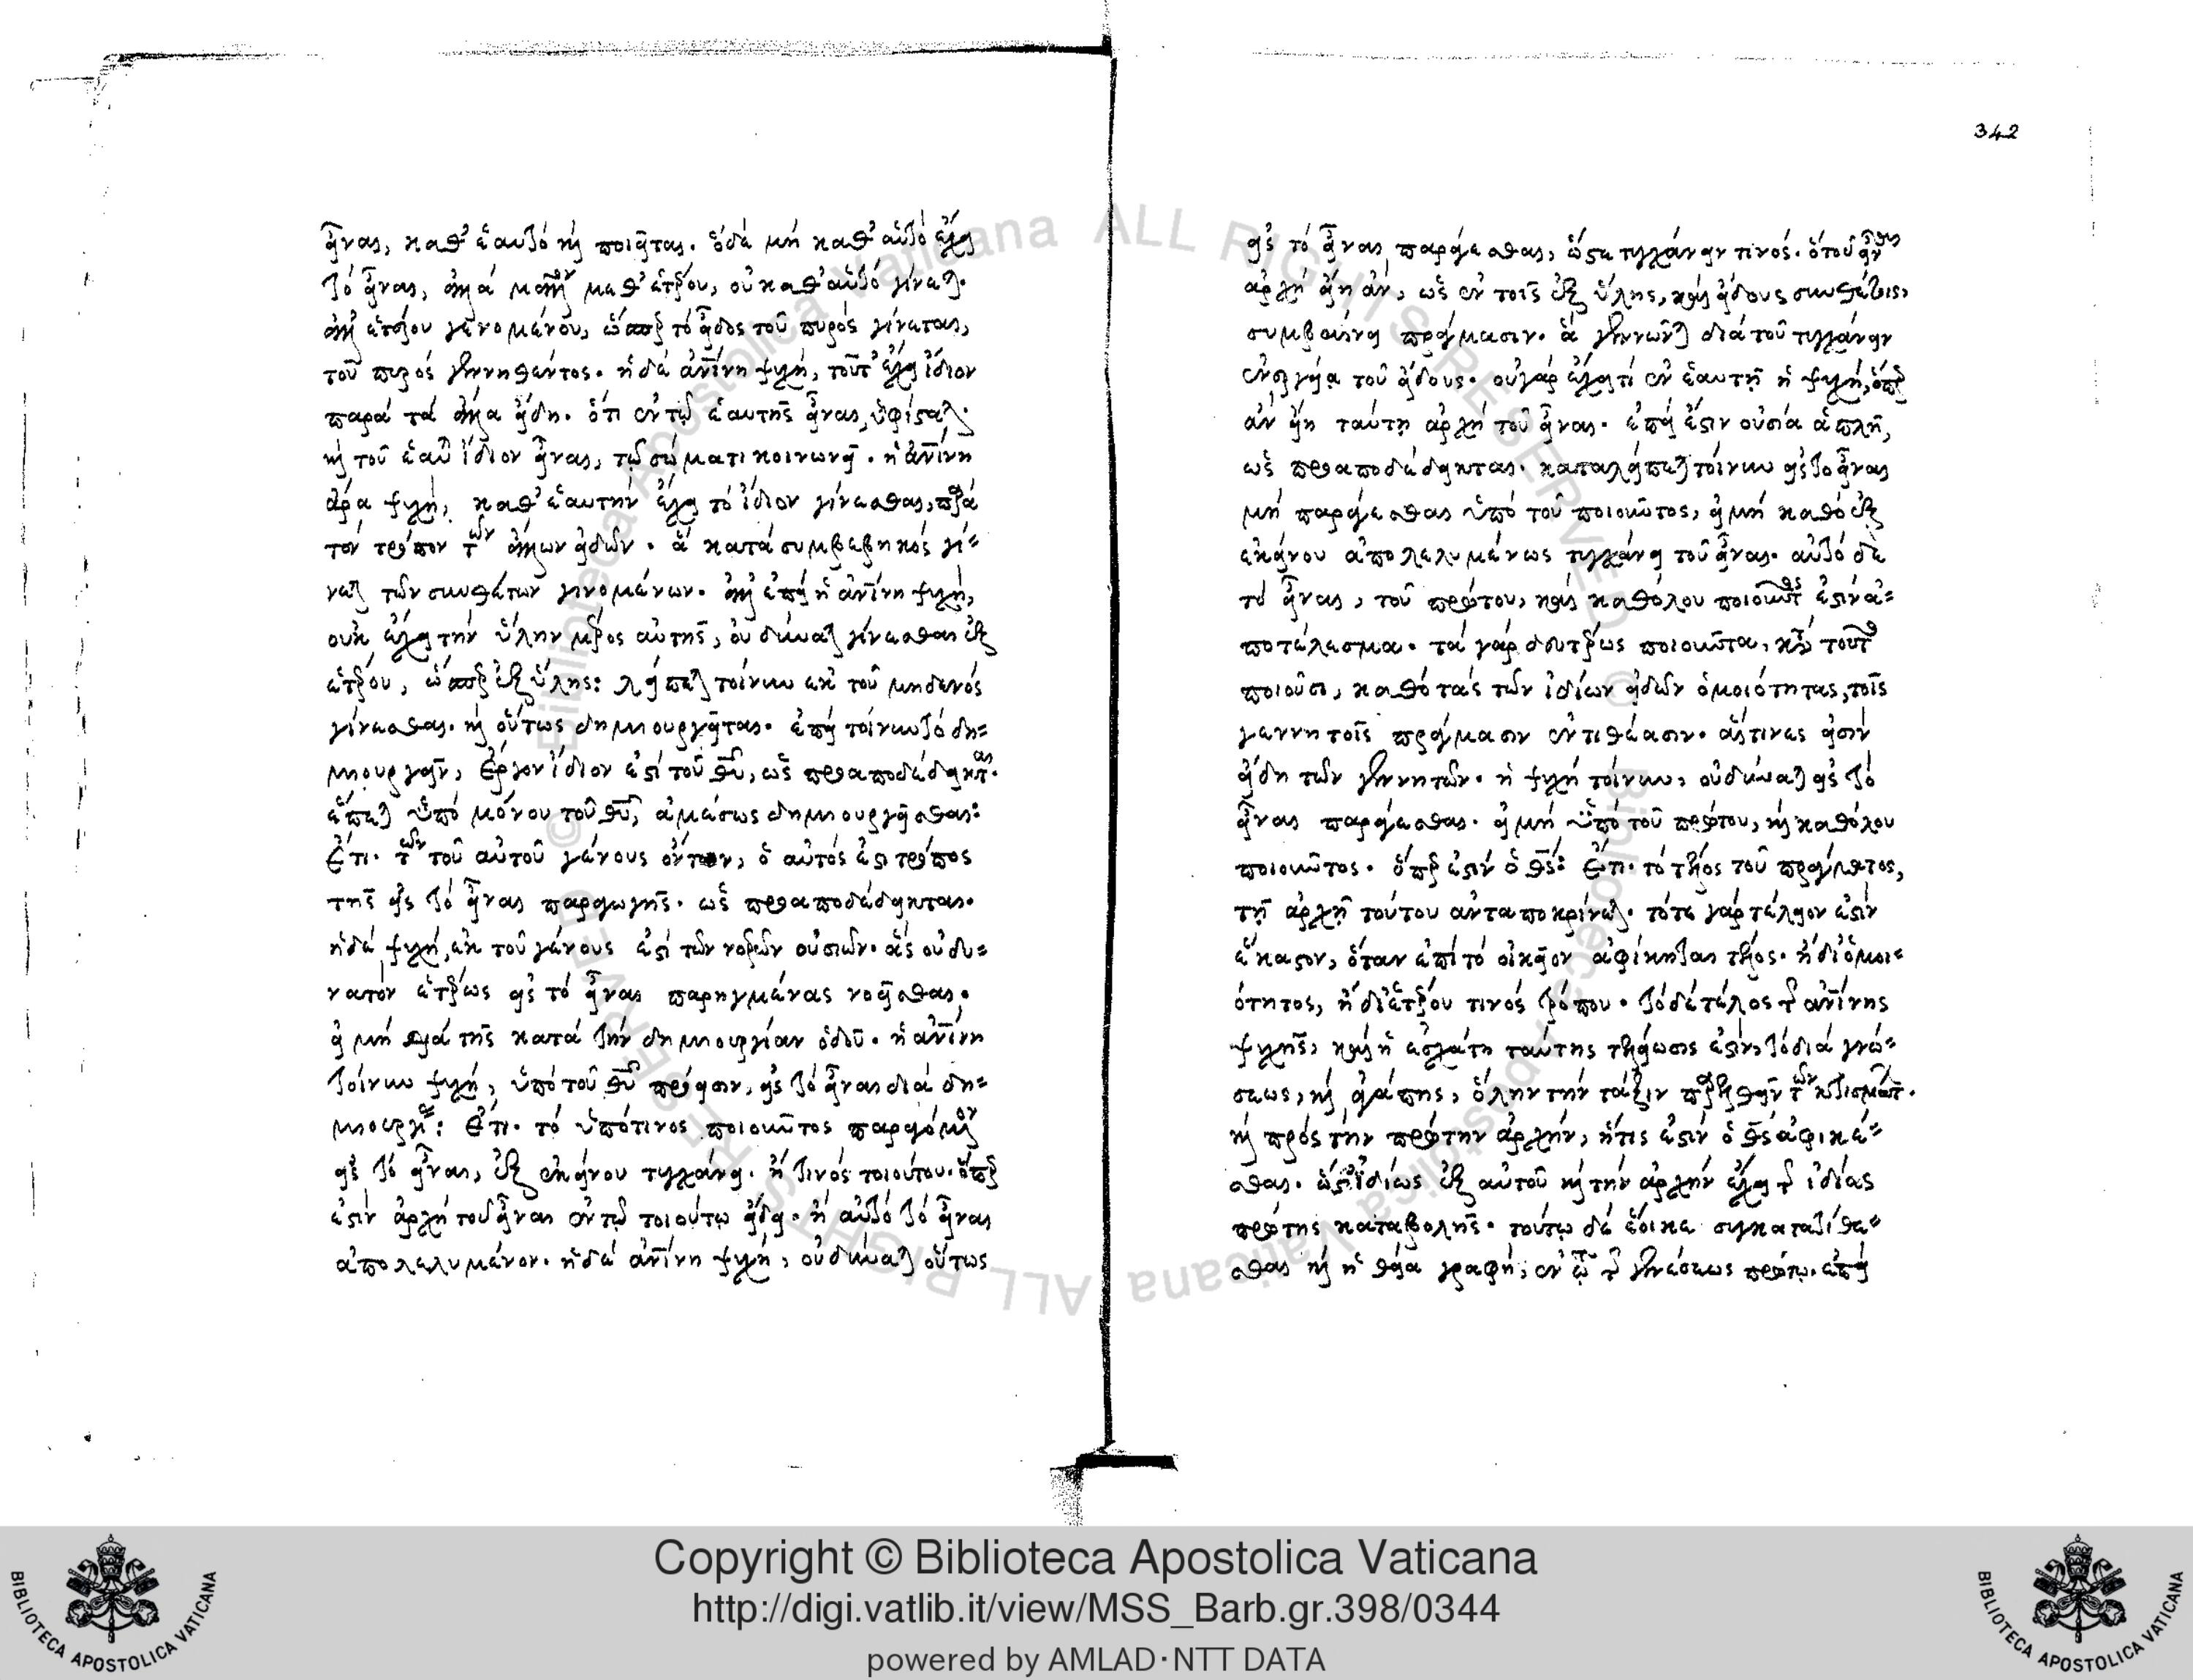 εἶναι, καθ' ἑαυτό καὶ ποιεῖται. ὃ δὲ μὴ καθ' αὑτό ἔχει
τὸ εἶναι, ἀλλὰ μᾶλλον μεθ' ἑτέρου, οὐ καθ' αὑτό γίνεται.
ἀλλ' ἑτέρου γενομένου, ὥσπερ τὸ εἶδος τοῦ πυρός γίνεται,
τοῦ πυρός γεννηθέντος. ἡ δὲ ἀνίνη ψυχή, τοῦτ' ἔχει ἴδιον
παρά τὰ ἄλλα εἴδη. ὅτι ἐν τῷ ἑαυτῆς εἶναι, ὑφίσταται.
καὶ τοῦ ἑαυτοῦ ἴδιον εἶναι, τῷ σώματι κοινωνεῖ. ἡ ἀνίνη
ἄρα ψυχή, καθ' ἑαυτήν ἔχει τὸ ἴδιον γίνεσθαι, παρά
τὸν τρόπον τῶν ἄλλων εἰδῶν. ἃ κατά συμβεβηκός γί=
νεται τῶν συνθέτων γινομένων. ἀλλ' ἐπεὶ ἡ ἀνίνη ψυχή,
οὐκ ἔχει τὴν ὕλην μέρος αὐτῆς, οὐ δύναται γίνεσθαι ἐξ
ἑτέρου, ὥσπερ ἐξ ὕλης: λείπεται τοίνυν ἐκ τοῦ μηδενός
γίνεσθαι. καὶ οὕτως δημιουργεῖται. ἐπεὶ τοίνυν τὸ δη=
μιουργεῖν, ἔργον ἴδιον ἐστί τοῦ θυ, ὡς προαποδέδεικται.
ἕπεται ὑπό μόνου τοῦ θυ, ἀμέσως δημιουργεῖσθαι:
Ἔτι. τῶν τοῦ αὐτοῦ γένους ὄντων, ὁ αὐτός ἐστι τρόπος
τῆς εἰς τὸ εἶναι παραγωγῆς. ὡς προαποδέδεικται.
ἡ δὲ ψυχή, ἐκ τοῦ γένους ἐστί τῶν νοερῶν οὐσιῶν. ἃς οὐ δυ=
νατόν ἑτέρως εἰς τὸ εἶναι παρηγμένας νοεῖσθαι.
εἰ μὴ διά τῆς κατά τὴν δημιουργίαν ὁδοῦ. ἡ ἀνίνη
τοίνυν ψυχή, ὑπό τοῦ θυ πρόεισιν, εἰς τὸ εἶναι διά δη=
μιουργίας: Ἔτι. τὸ ὑπό τινος ποιοῦντος παραγόμενον
εἰς τὸ εἶναι, ἐξ ἐκείνου τυγχάνει. ἤ τινός τοιούτου. ὅπερ
ἐστίν ἀρχή τοῦ εἶναι ἐν τῷ τοιούτῳ εἴδει. ἢ αὐτό τὸ εἶναι
ἀπολελυμένον. ἡ δὲ ἀνίνη ψυχή, οὐ δύναται οὕτως
342
εἰς τὸ εἶναι παράγεσθαι, ὥστε τυγχάνειν τινός. ὃ τοῦ εἶναι
ἀρχή εἴη ἄν, ὡς ἐν τοῖς ἐξ ὕλης, καὶ εἴδους συνθέτοις,
συμβαίνει πράγμασιν. ἃ γεννῶνται διά τοῦ τυγχάνειν
ἐνεργείᾳ τοῦ εἴδους. οὐ γάρ ἔχει τί ἐν ἑαυτῇ ἡ ψυχή, ὅπερ
ἄν εἴη ταύτῃ ἀρχή τοῦ εἶναι. ἐπεὶ ἔστιν οὐσία ἁπλῆ,
ὡς προαποδέδεικται. καταλείπεται τοίνυν εἰς τὸ εἶναι
μὴ παράγεσθαι ὑπό τοῦ ποιοῦντος, εἰ μὴ καθό ἐξ
ἐκείνου ἀπολελυμένως τυγχάνει τοῦ εἶναι. αὐτό δὲ
τὸ εἶναι, τοῦ πρώτου, καὶ καθόλου ποιοῦντος ἐστίν ἀ=
ποτέλεσμα. τὰ γάρ δευτέρως ποιοῦντα, κατὰ τοῦτο
ποιοῦσι, καθό τάς τῶν ἰδίων εἰδῶν ὁμοιότητας, τοῖς
γεννητοῖς πράγμασιν ἐντιθέασιν. αἵτινες εἰσίν
εἴδη τῶν γεννητῶν. ἡ ψυχή τοίνυν, οὐ δύναται εἰς τὸ
εἶναι παράγεσθαι. εἰ μὴ ὑπό τοῦ πρώτου, καὶ καθόλου
ποιοῦντος. ὅπερ ἐστίν ὁ θς: Ἔτι. τὸ τέλος τοῦ πράγματος,
τῇ ἀρχῇ τούτου ἀνταποκρίνεται. τότε γάρ τέλειον ἐστίν
ἕκαστον, ὅταν ἐπί τὸ οἰκεῖον ἀφίκηται τέλος. ἢ δι' ὁμοι=
ότητος, ἢ δι' ἑτέρου τινός τρόπου. τὸ δὲ τέλος τῆς ἀνίνης
ψυχῆς, καὶ ἡ ἐσχάτη ταύτης τελείωσις ἐστίν, τὸ διά γνώ=
σεως, καὶ ἀγάπης, ὅλην τὴν τάξιν παρελθεῖν τῶν κτισμάτων.
καὶ πρός τὴν πρώτην ἀρχήν, ἥτις ἐστίν ὁ θς ἀφικέ=
σθαι. ὥστε ἰδίως ἐξ αὐτοῦ καὶ τὴν ἀρχήν ἔχει τῆς ἰδίας
πρώτης καταβολῆς. τούτῳ δὲ ἔοικε συγκατατίθε=
σθαι καὶ ἡ θεία γραφή, ἐν τῷ τῆς γενέσεως πρώτῳ. ἐπεὶ
Copyright © Biblioteca Apostolica Vaticana
http://digi.vatlib.it/view/MSS_Barb.gr.398/0344
powered by AMLAD·NTT DATA
BIBLIOTECA APOSTOLICA VATICANA
BIBLIOTECA APOSTOLICA VATICANA
© Biblioteca Apostolica Vaticana ALL RIGHTS RESERVED © Biblioteca Apostolica Vaticana ALL RIGHTS RESERVED